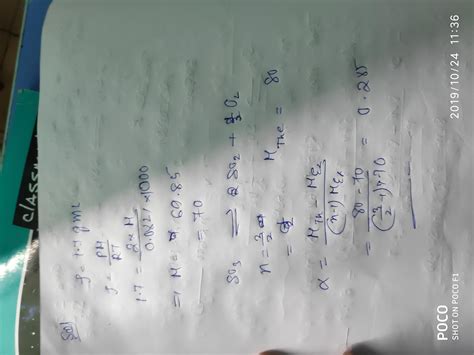 Sol
ρ = 1.7 g/mL
ρ = PM/RT
1.7 = 2 × M / 0.0821 × 1000
⇒ M = 69.85
≈ 70
SO3 ⇌ SO2 + 1/2 O2
n = 3/2
MThe = 80
α = MTh - MEx / (n-1) MEx
= 80 - 70 / (3/2 - 1) × 70 = 0.285
CLASSM
2019/10/24 11:36
POCO
SHOT ON POCO F1